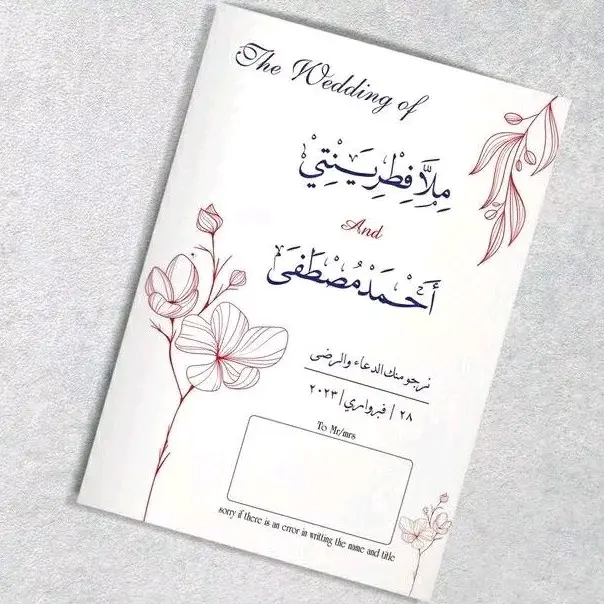 The Wedding of
مِلَّا فِطْرِيَـنْتِيْ
And
أَحْمَدْ مُصْطَفَى
نرجو منك الدعاء والرضى
٢٨ / فبرواري / ٢٠٢٣
To Mr/mrs
sorry if there is an error in writting the name and title